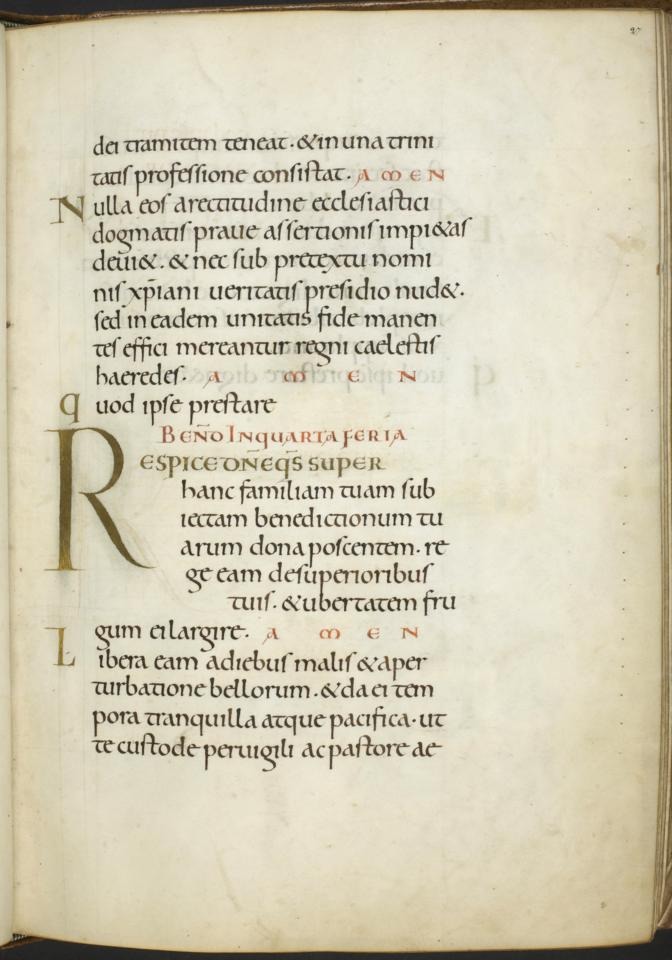 27
dei tramitem teneat. & in una trini
tatis professione consistat. AMEN
Nulla eos arectitudine ecclesiastici
dogmatis praue assertionis impi&as
deui&. & nec sub pretextu nomi
nis xp̄iani ueritatis presidio nud&.
sed in eadem unitatis fide manen
tes effici mereantur regni caelestis
haeredes. AMEN
quod ipse prestare
BEÑD IN QUARTA FERIA
RESPICE DÑE Q̄S SUPER
hanc familiam tuam sub
iectam benedictionum tu
arum dona poscentem. re
ge eam desuperioribus
tuis. & ubertatem fru
gum ei largire. AMEN
Libera eam adiebus malis & aper
turbatione bellorum. & da ei tem
pora tranquilla atque pacifica. ut
te custode peruigili ac pastore ae